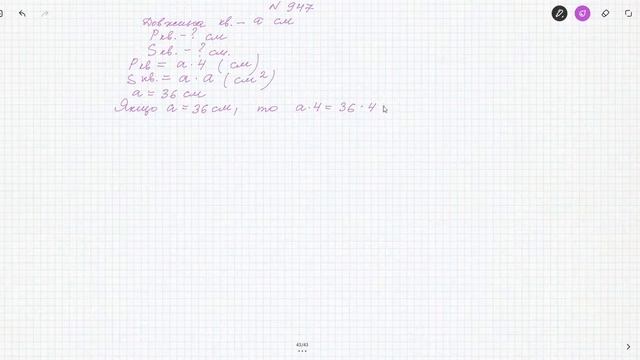 N 947
Довжина кв. – a см
Pкв. – ? см
Sкв. – ? см.
Pкв = a · 4 (см)
Sкв. = a · a (см²)
a = 36 см
Якщо a = 36 см, то a · 4 = 36 · 4
43/43